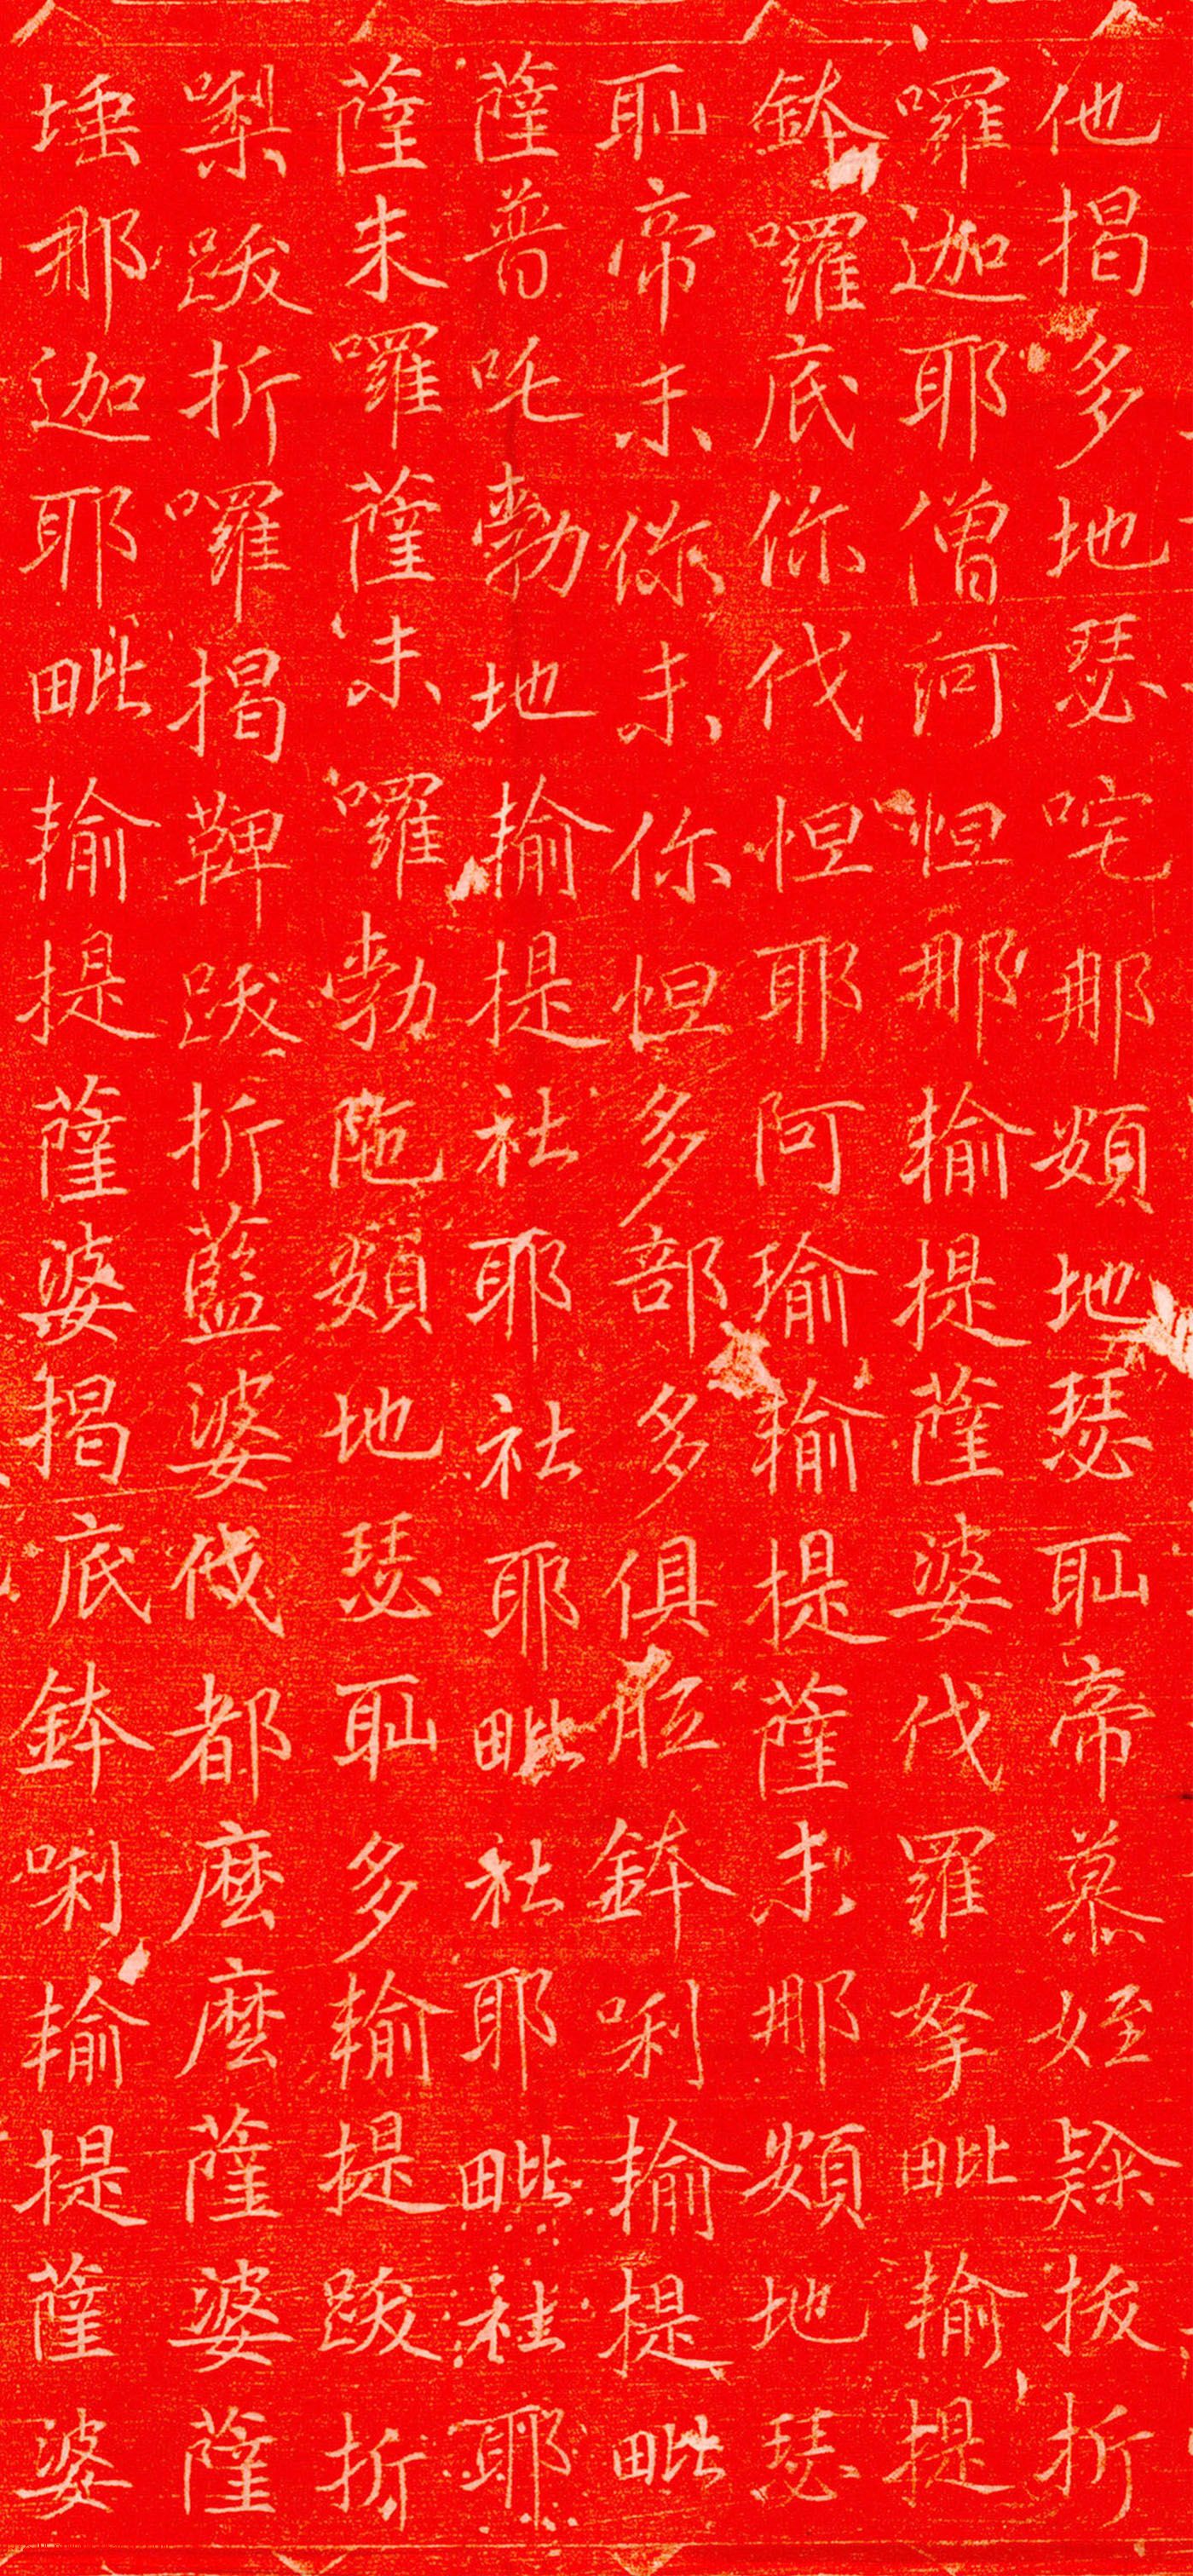 他揭多地瑟咤那頞地瑟耻帝慕姪隸拔折
囉迦耶僧河怛那輸提薩婆伐羅拏毗輸提
鉢囉底你伐怛耶阿瑜輸提薩末那頞地瑟
耻帝末你末你怛多部多俱胝鉢唎輸提毗
薩普吒勃地輸提社耶社耶毗社耶毗社耶
薩末囉薩末囉勃陁頞地瑟耻多輸提跋折
㘑跋折囉揭鞞跋折藍婆伐都麼麼薩婆薩
埵那迦耶毗輸提薩婆揭底鉢唎輸提薩婆